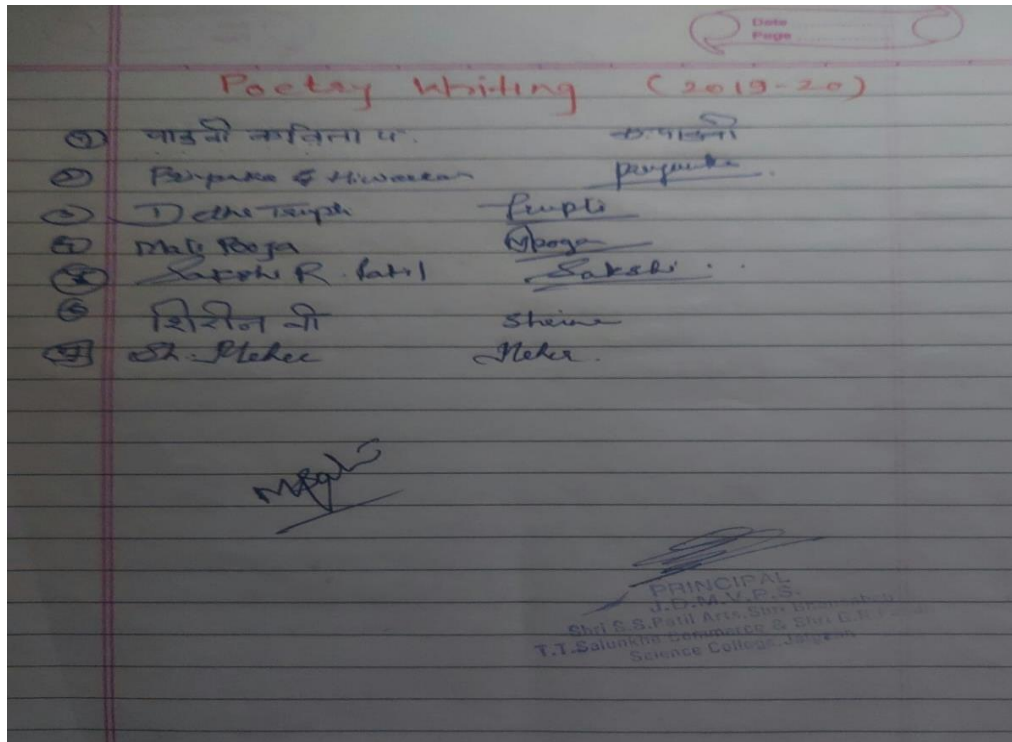 Date
Page
Poetry Writing (2019-20)
① पाडवी कविता प.
② Hiwarkar
③ Dethe
④ Mali Pooja Mpooja
⑤ Sakshi R. Patil Sakshi
⑥ शिरीन बी
⑦ Sh. Meher Meher.
PRINCIPAL
J.D.M.V.P.S.
Shri S.S.Patil Arts, Shri Bhausaheb
T.T.Salunkhe Commerce & Shri G.R.
Science College, Jalgaon